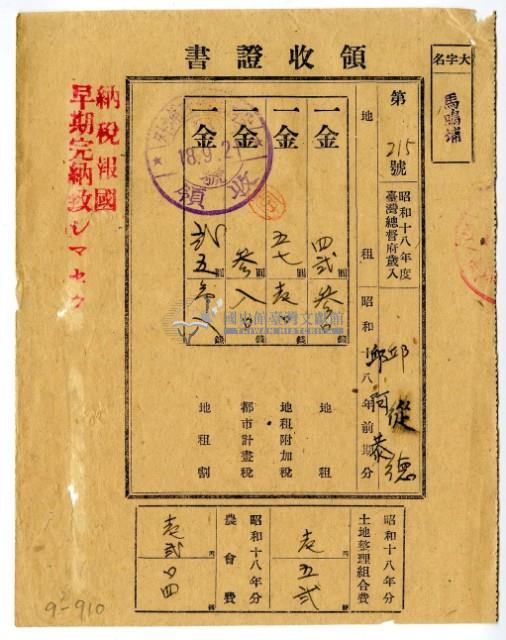 領收證書
大字名
馬鳴埔
第215號
昭和十八年度
臺灣總督府歲入
地租
昭和十八年前期分
邱從德
邱阿恭
一金
四弐
圓
叁
錢
地租
一金
五七
圓
錢
地租附加稅
一金
圓
錢
都市計畫稅
一金
弐五
圓
錢
地租割
18.9.2
領收
納稅報國
早期完納致シマセウ
昭和十八年分
土地整理組合費
五弐
昭和十八年分
農會費
弐
四
國史館臺灣文獻館
TAIWAN HISTORICA
9-910